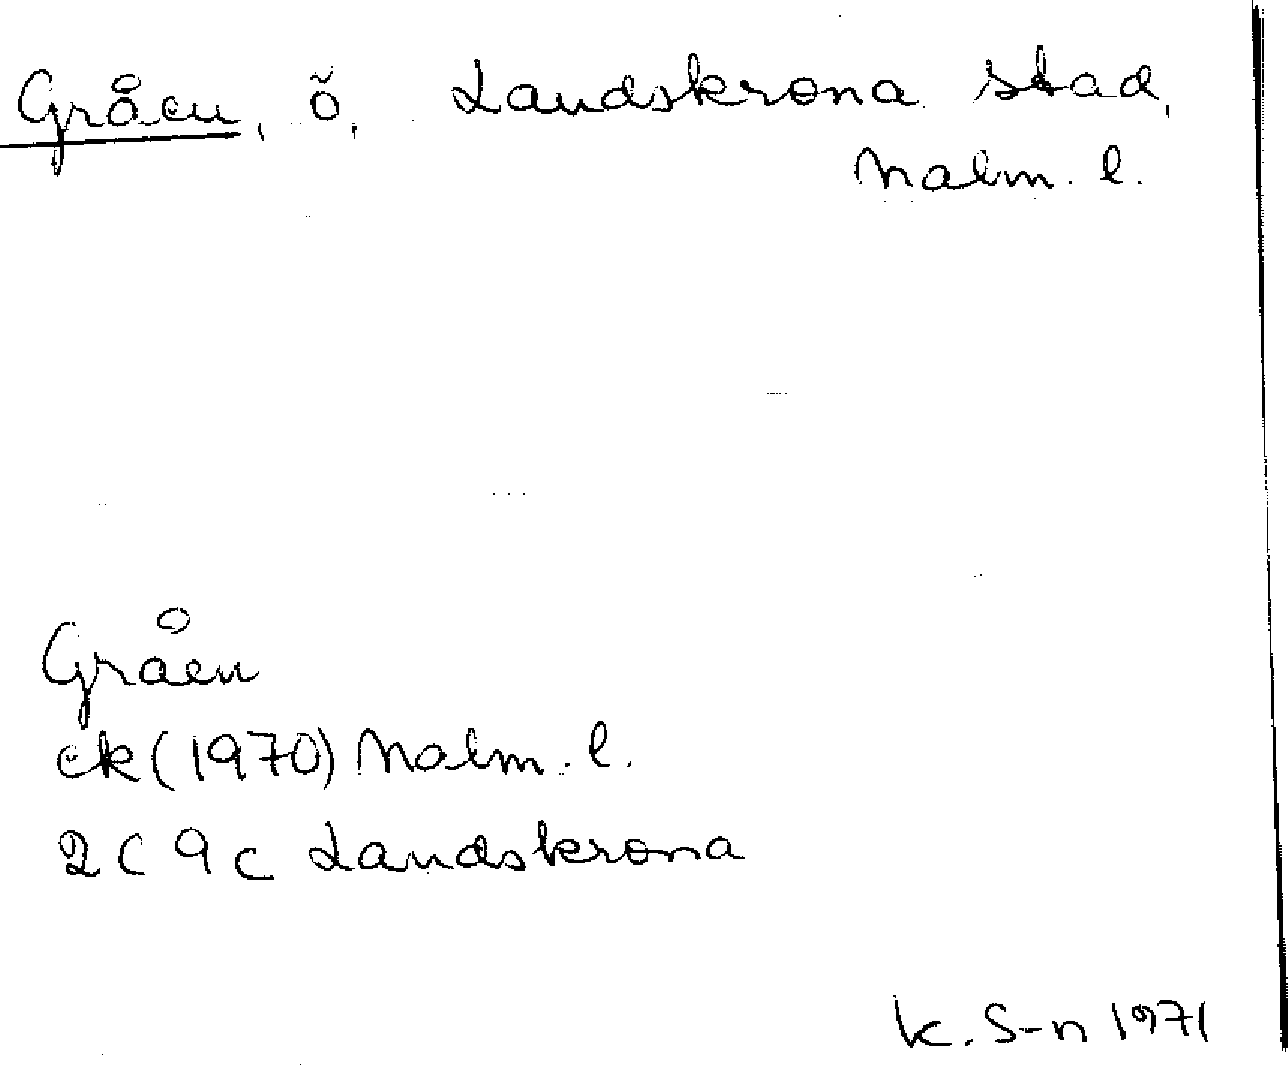 Gråen, ö, Landskrona stad,
Malm. l.
Gråen
ek (1970) Malm. l.
2 C 9 c Landskrona
K. S-n 1971